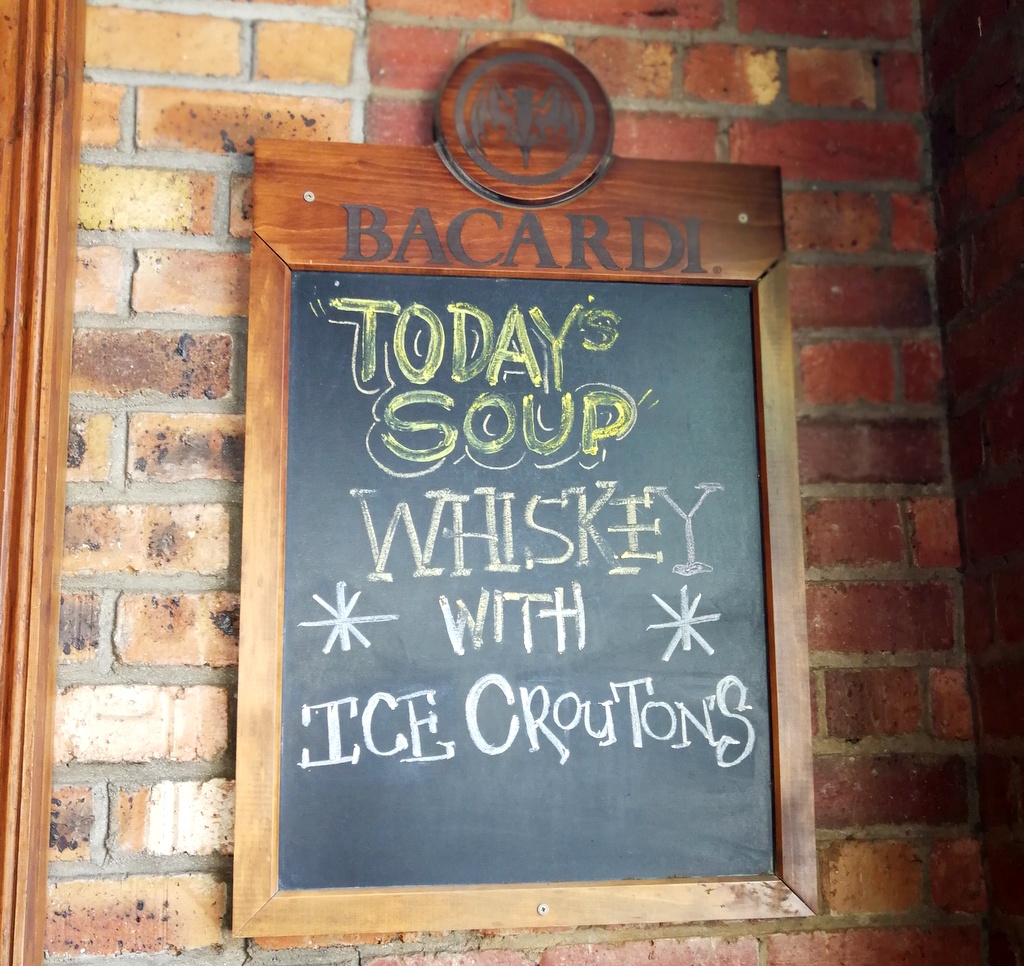 BACARDI.
TODAY'S
SOUP
WHISKEY
* WITH *
ICE CROUTONS